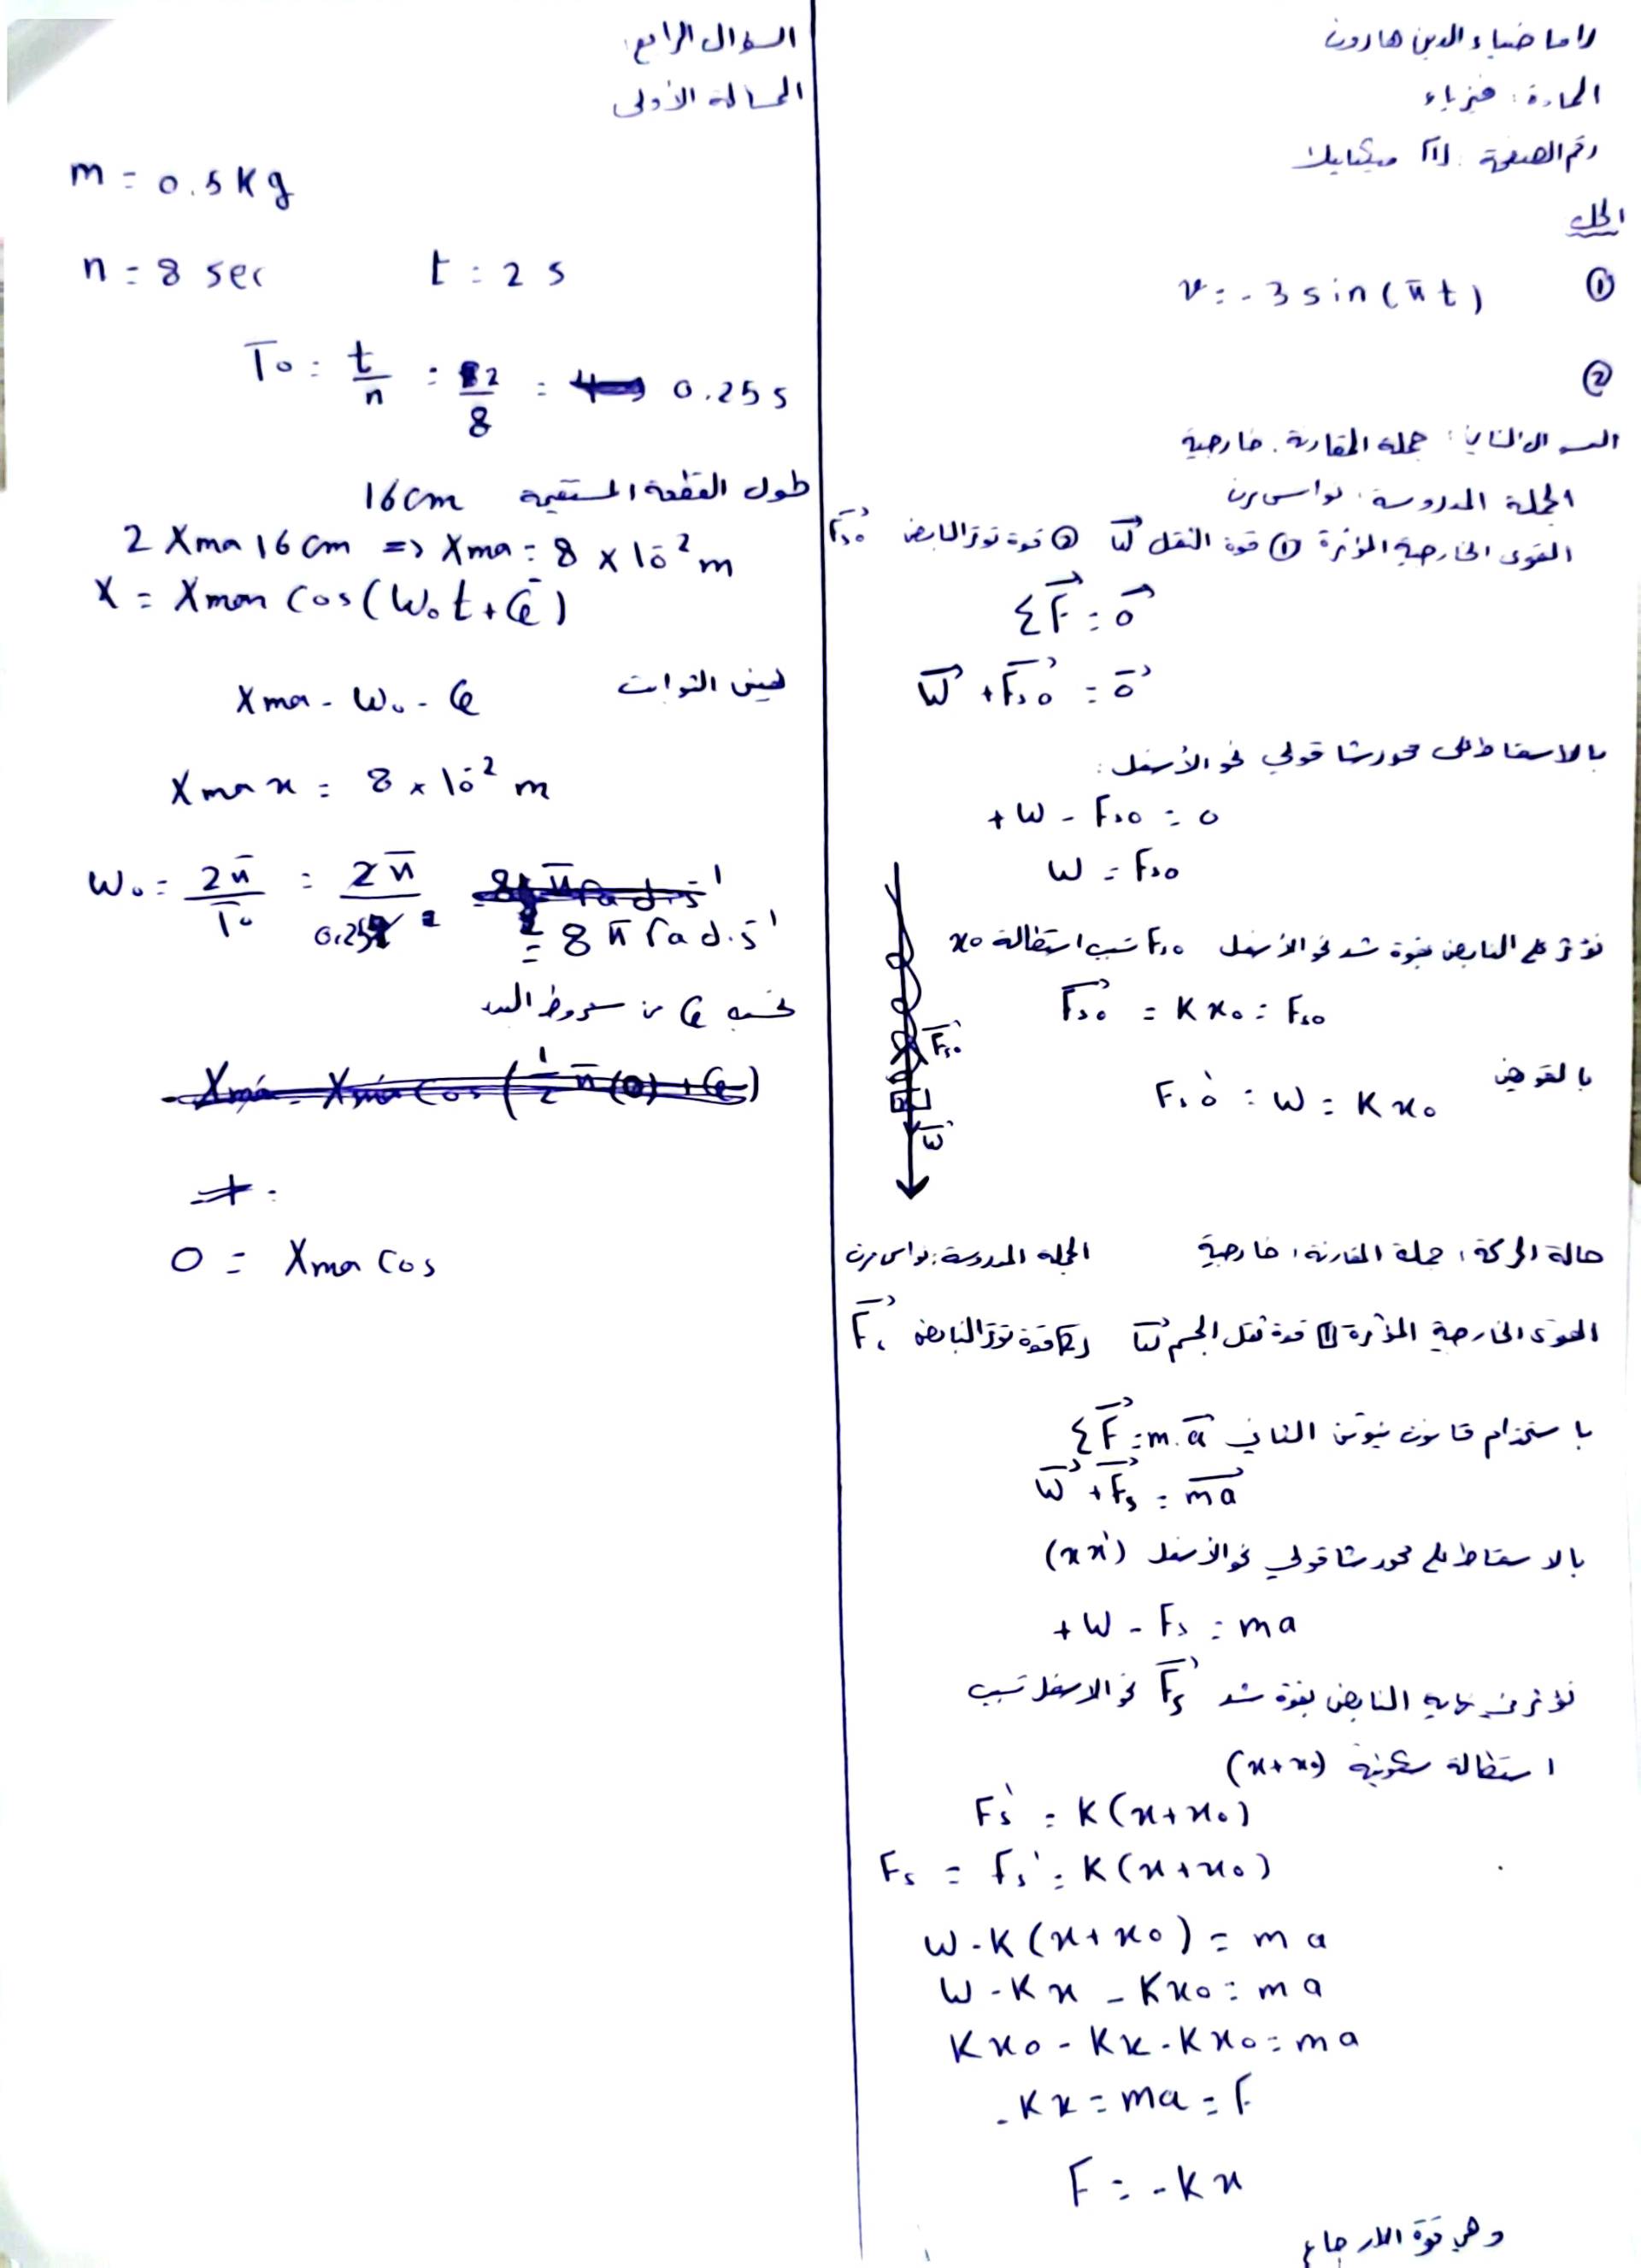 راما ضياء الدين هارون
المادة: فيزياء
رقم الصفحة: [1] ميكانيك
الحل
① v = -3 sin(π t)
②
السؤال الثاني: جملة المقارنة: خارجية
الجملة المدروسة: نواس مرن
القوى الخارجية المؤثرة ① قوة الثقل W⃗ ② قوة توتر النابض F⃗s₀
ΣF⃗ = 0⃗
W⃗ + F⃗s₀ = 0⃗
بالاسقاط على محور شاقولي نحو الأسفل:
+W - Fs₀ = 0
W = Fs₀
نؤثر على النابض بقوة شد نحو الأسفل Fs₀ تسبب استطالة x₀
F⃗s₀' = K x₀ = Fs₀
بالتعويض Fs₀' = W = K x₀
F⃗s₀
W⃗
حالة الحركة: جملة المقارنة: خارجية الجملة المدروسة: نواس مرن
القوى الخارجية المؤثرة [1] قوة ثقل الجسم W⃗ [2] قوة توتر النابض F⃗s
باستخدام قانون نيوتن الثاني ΣF⃗ = m.a⃗
W⃗ + F⃗s = ma⃗
بالاسقاط على محور شاقولي نحو الأسفل (xx')
+W - Fs = ma
نؤثر في نهاية النابض بقوة شد F⃗s' نحو الاسفل تسبب
استطالة سكونية (x+x₀)
Fs' = K(x+x₀)
Fs = Fs' = K(x+x₀)
W - K(x+x₀) = ma
W - Kx - Kx₀ = ma
Kx₀ - Kx - Kx₀ = ma
-Kx = ma = F
F = -Kx
وهي قوة الارجاع
السؤال الرابع:
المسالة الأولى
m = 0.5 Kg
n = 8 sec t = 2 s
T₀ = t/n = 2/8 = 0.25 s
طول القطعة المستقيمة 16 cm
2 Xma 16 cm => Xma = 8 × 10⁻² m
X = Xmax cos(W₀t + φ̄)
نعين الثوابت Xma - W₀ - φ
Xmax = 8 × 10⁻² m
W₀ = 2π/T₀ = 2π/0.25
= 8π rad.s⁻¹
نحسب φ من شروط البدء
0 = Xma cos